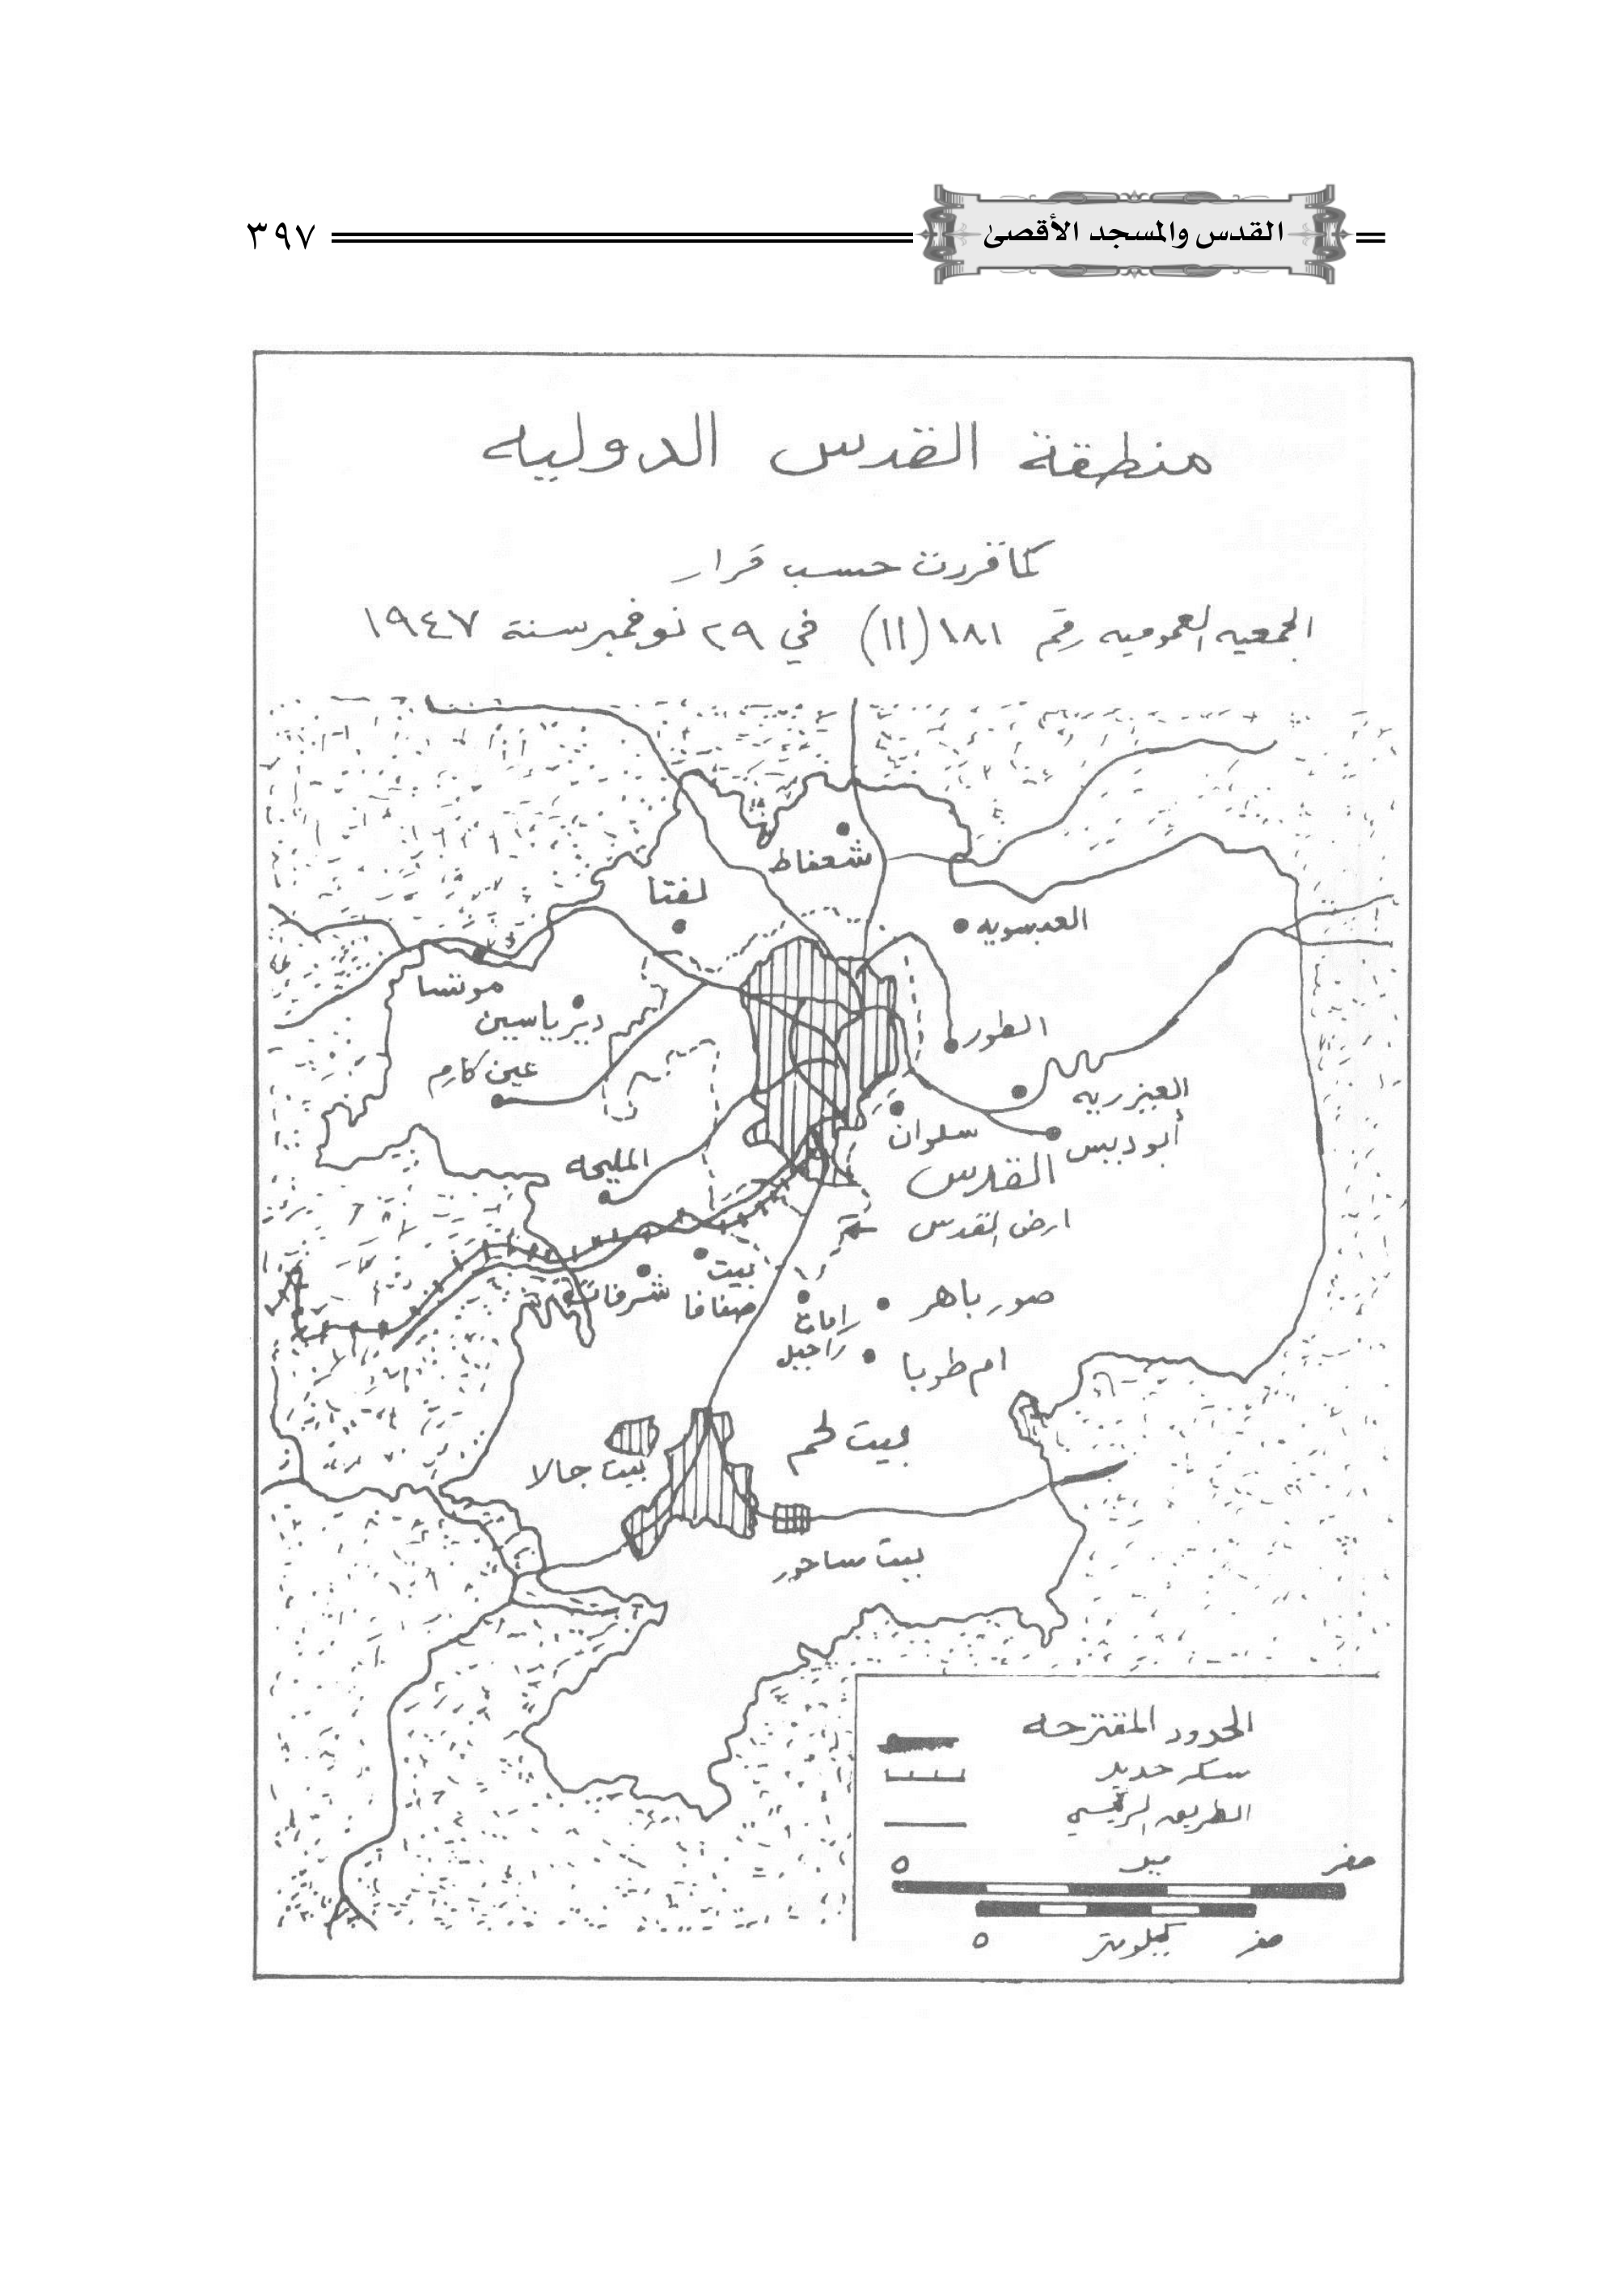 القدس والمسجد الأقصىٰ
٣٩٧
منطقة القدس الدوليه
كما قررت حسب قرار
الجمعيه العموميه رقم ١٨١ (١١) في ٢٩ نوفمبر سنة ١٩٤٧
شعفاط
لفتا
العيسويه
موتسا
ديرياسين
الطور
عين كارم
العيزريه
سلوان
أبوديس
المليحه
القدس
ارض القدس
بيت
صفافا
شرفات
صور باهر
رامات
راحيل
ام طوبا
بيت لحم
بيت جالا
بيت ساحور
الحدود المقترحه
سكه حديد
الطريق الرئيسي
صفر
ميل
٥
صفر
كيلومتر
٥